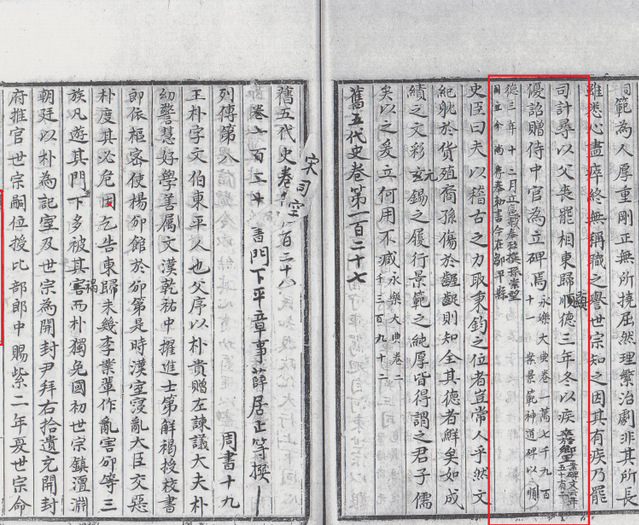 範為人厚重剛正無所撓屈然理繁治劇非其所長
雖悉心盡瘁終無稱職之譽世宗知之因其有疾乃罷
司計尋以父喪罷相東歸顯德三年冬以疾
優詔贈侍中官為立碑焉永樂大典卷一萬七千九百
十一 案景範神道碑以顯
德三年十二月立
史臣曰夫以稽古之力取秉鈞之位者豈常人乎然文
紀躭於貨殖裔孫傷於齷齪則知全其德者鮮矣如成
績之文彩玄錫之履行景範之純厚皆得謂之君子儒
矣以之爰立何用不臧永樂大典卷二
千三百九十
舊五代史卷第一百二十七
舊五代史卷一百二十八
宋司空
門下平章事薛居正等撰
列傳第八 周書十九
王朴字文伯東平人也父序以朴貴贈左諫議大夫朴
幼警慧好學善属文漢乾祐中擢進士第解褐授校書
郎依樞密使楊邠館於邠第是時漢室寖亂大臣交惡
朴度其必危因乞告東歸未幾李業輩作亂害邠等三
族凡遊其門下多被其害而朴獨免國初世宗鎮澶淵
禍
朝廷以朴為記室及世宗為開封尹拜右拾遺充開封
府推官世宗嗣位授比部郎中賜紫二年夏世宗命